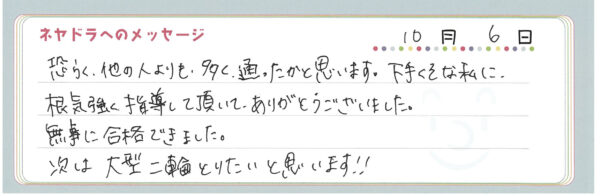 ネヤドラへのメッセージ 10月 6日
恐らく、他の人よりも、多く、通ったかと思います。下手くそな私に、
根気強く指導して頂いて、ありがとうございました。
無事に合格できました。
次は大型二輪とりたいと思います!!